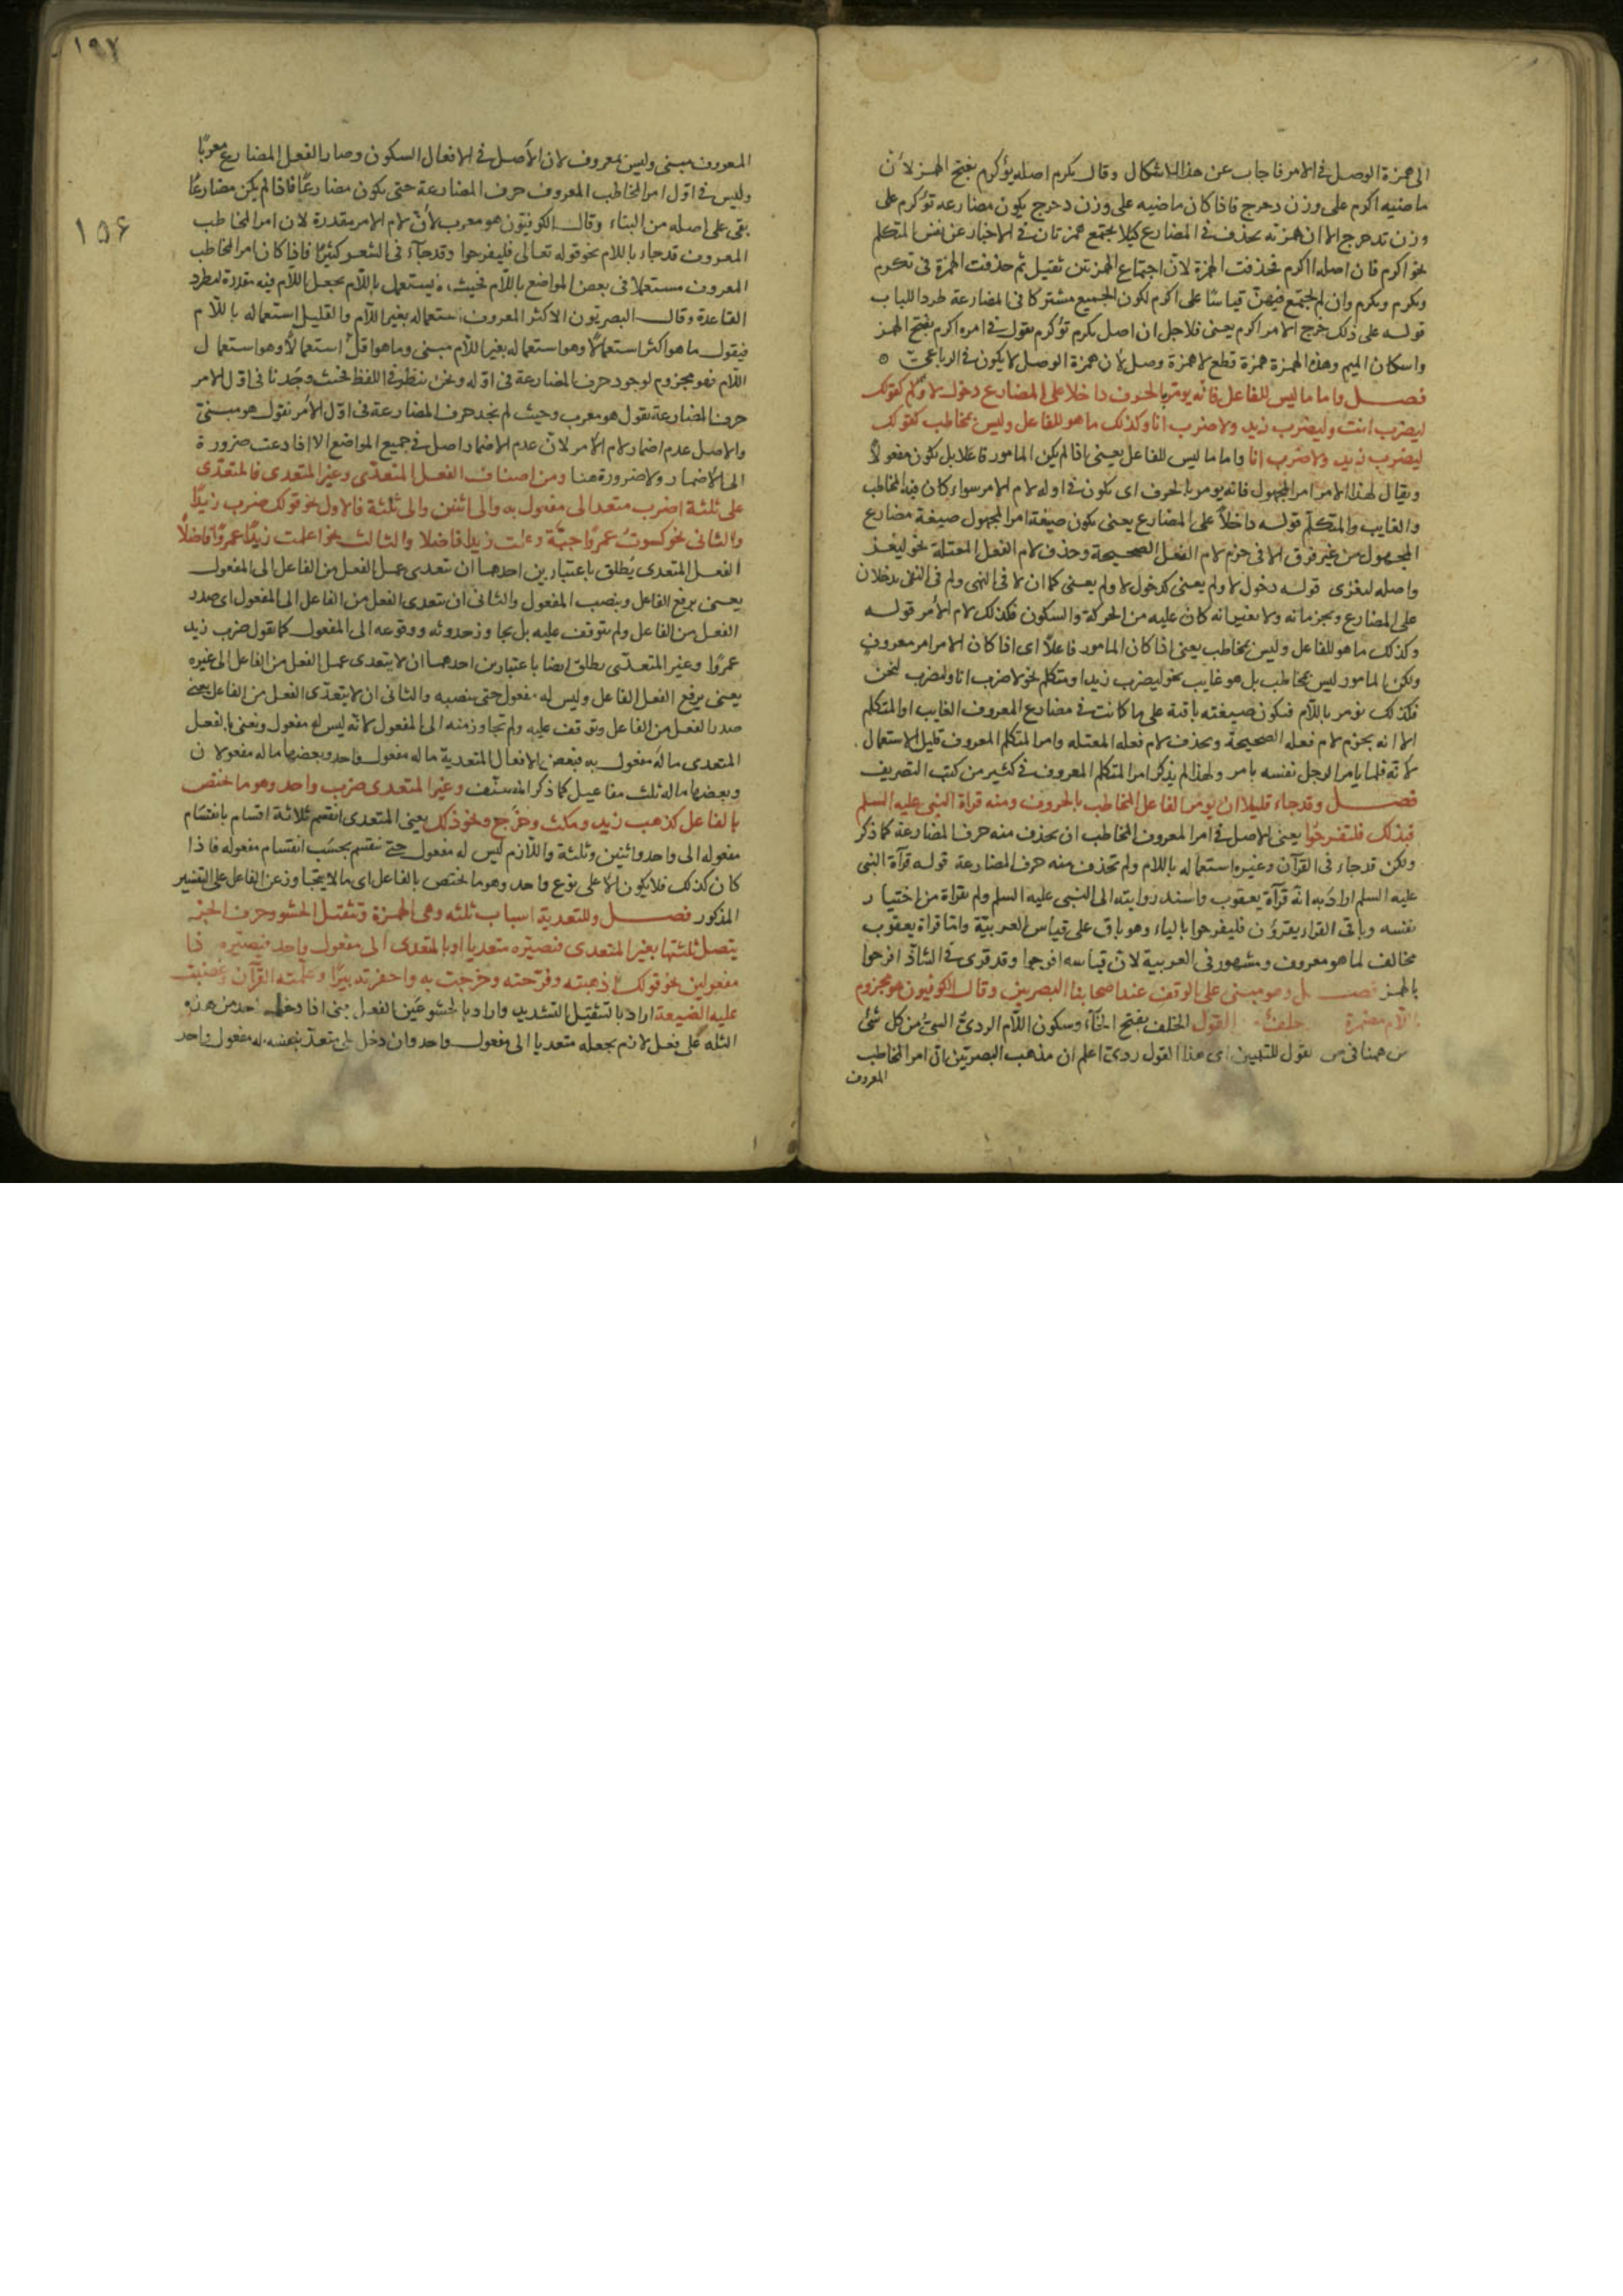 الى همزة الوصل فى الامر فاجاب عن هذا الاشكال وقال يكرم اصله يؤكرم بفتح الهمز لأن
ماضيه اكرم على وزن دحرج فاذا كان ماضيه على وزن دحرج يكون مضارعه تؤكرم على
وزن تدحرج الا ان همزته يحذف فى المضارع كيلا يجتمع همزتان فى الاخبار عن نفس المتكلم
نحو اكرم فان اصله ااكرم فحذفت الهمزة لان اجتماع الهمزتين ثقيل ثم حذفت الهمزة فى تكرم
ونكرم ويكرم وان لم يجتمع فيهن قياسًا على اكرم لكون الجميع مشتركا فى المضارعة طردا للباب
قوله على ذلك خرج الامر اكرم يعنى فلاجل ان اصل يكرم تؤكرم يقول فى امره اكرم بفتح الهمز
واسكان الميم وهذه الهمزة همزة قطع لا همزة وصل لأن همزة الوصل لا يكون فى الرباعى
فصل واما ما ليس للفاعل فانه يومر بالحرف داخلا على المضارع دخول لا ولم كقولك
ليضرب انت وليضرب زيد ولاضرب انا وكذلك ما هو للفاعل وليس بمخاطب كقولك
ليضرب زيد ولاضرب انا واما ما ليس للفاعل يعنى اذا لم يكن المامور فاعلا بل يكون مفعولاً
ويقال لهذا الامر امر المجهول فانه يومر بالحرف اى يكون فى اوله لام الامر سواء كان فيه المخاطب
والغايب والمتكلم قوله داخلاً على المضارع يعنى يكون صيغة امر المجهول صيغة مضارع
المجهول من غير فرق الا فى جزم لام الفعل الصحيحة وحذف لام الفعل المعتلة نحو ليغز
واصله ليغزى قوله دخول لا ولم يعنى كدخول لا ولم يعنى كما ان لا فى النهى ولم فى النفى يدخلان
على المضارع ويجزمانه ولا يغيرانه كان عليه من الحركة والسكون فكذلك لام الأمر قوله
وكذلك ما هو للفاعل وليس بمخاطب يعنى اذا كان المامور فاعلاً اى اذا كان الامر امر معروف
ولكن المامور ليس بمخاطب بل هو غايب نحو ليضرب زيد او متكلم نحو لاضرب انا ولنضرب نحن
فكذلك يومر باللام فيكون صيغته باقية على ما كانت فى مضارع المعروف الغايب او المتكلم
الا انه يجزم لام فعله الصحيحة ويحذف لام فعله المعتله وامر المتكلم المعروف قليل الاستعمال
لانه قلما يامر الرجل نفسه بامر ولهذا لم يذكر امر المتكلم المعروف فى كثير من كتب التصريف
فصل وقد جاء قليلا ان يومر الفاعل المخاطب بالحروف ومنه قراة النبى عليه السلم
فبذلك فلتفرحوا يعنى الاصل فى امر المعروف المخاطب ان يحذف منه حرف المضارعة كما ذكر
ولكن قد جاء فى القرآن وغيره استعماله باللام ولم تحذف منه حرف المضارعة قوله قرآة النبى
عليه السلم اراد به انه قرآة يعقوب واسند روايته الى النبى عليه السلم ولم يقراة من اختيار
نفسه وباقى القراء يقرؤن فليفرحوا بالياء وهو باق على قياس العربية وانما قراة يعقوب
مخالف لما هو معروف ومشهور فى العربية لان قياسه افرحوا وقد قرى فى الشاذ افرحوا
بالهمز فصل وهو مبنى على الوقف عند اصحابنا البصريين وقال الكوفيون هو مجزوم
اللام مضمرة خلف القول الخلف بفتح الخآء وسكون اللام الردىّ السىءُ من كل شئ
من همنا فى من القول للتبيين اى هذا القول ردىّ اعلم ان مذهب البصريين ان امر المخاطب
المعروف
١٩٧
١٥۶
المعروف مبنى وليس بمعروف لان الأصل فى الافعال السكون وصار الفعل المضارع معربًا
وليس فى اول امر المخاطب المعروف حرف المضارعة حتى يكون مضارعًا فاذا لم يكن مضارعًا
بقى على اصله من البناء وقال الكوفيون هو معرب لأن لام الامر مقدرة لان امر المخاطب
المعروف قد جاء باللام نحو قوله تعالى فليفرحوا وقد جآء فى الشعر كثيرًا فاذا كان امر المخاطب
المعروف مستعملا فى بعض المواضع باللام فحيث لم يستعمل باللام يجعل اللام فيه مقدرة لمطرد
القاعدة وقال البصريون الاكثر المعروف استعماله بغير اللام والقليل استعماله باللام
فيقول ما هو اكثر استعمالا وهو استعماله بغير اللام مبنى وما هو اقلّ استعمالاً وهو استعمال
اللام فهو مجزوم لوجود حرف المضارعة فى اوله ونحن ننظر فى اللفظ فحيث وجدنا فى اول الامر
حرف المضارعة نقول هو معرب وحيث لم نجد حرف المضارعة فى اول الأمر نقول هو مبنى
والاصل عدم اضمار لام الأمر لان عدم الاضمار اصل فى جميع المواضع الا اذا دعت ضرورة
الى الاضمار ولا ضرورة هنا ومن اصناف الفعل المتعدى وغير المتعدى فالمتعدى
على ثلثة اضرب متعد الى مفعول به والى اثنين والى ثلثة فالاول نحو قولك ضرب زيداً
والثانى نحو كسوت عمرًا جبّة وعلمت زيدا فاضلا والثالث نحو اعلمت زيدًا عمروًا فاضلاً
الفعل المتعدى يُطلق باعتبارين احدهما ان تعدى عمل الفعل من الفاعل الى المفعول
يعنى يرفع الفاعل وينصب المفعول والثانى ان يتعدى الفعل من الفاعل الى المفعول اى صدر
الفعل من الفاعل ولم يتوقف عليه بل تجاوز حدوثه ووقوعه الى المفعول كما تقول ضرب زيد
عمروًا وغير المتعدّى يطلق ايضا باعتبارين احدهما ان لا يتعدى عمل الفعل من الفاعل الى غيره
يعنى يرفع الفعل الفاعل وليس له مفعول حتى ينصبه والثانى ان لا يتعدّى الفعل من الفاعل يعنى
صدر الفعل من الفاعل وتوقف عليه ولم تجاوز منه الى المفعول لانه ليس له مفعول ونعنى بالفعل
المتعدى ما له مفعول به فبعض الافعال المتعدية ما له مفعول واحد وبعضها ما له مفعولان
وبعضها ما له ثلث مفاعيل كما ذكر المصنّف وغير المتعدى ضرب واحد وهو ما اختص
بالفاعل كذهب زيد ومكث وخرج ونحو ذلك يعنى المتعدى انقسم ثلاثة اقسام بانقسام
مفعوله الى واحد واثنين وثلثة واللازم ليس له مفعول حتى ينقسم بحسب انقسام مفعوله فاذا
كان كذلك فلا يكون الا على نوع واحد وهو ما يختص بالفاعل اى ما لا يتجاوز عن الفاعل على التفسير
المذكور فصل وللتعدية اسباب ثلثه وهى الهمزة وتثقيل الحشو وحرف الجر
يتصل ثلثتها بغير المتعدى فتصيّره متعديا وبالمتعدى الى مفعول واحد فتصيّره ذا
مفعولين نحو قولك اذهبته وفرّحته وخرجت به واحفرته بئرًا وعلّمته القرآن وغصبت
عليه الضيعة اراد بالتثقيل التشديد واراد بالحشو عَين الفعل يعنى اذا دخل احد من هذه
الثلثه على فعل لازم يجعله متعديا الى مفعول واحد وان دخل على متعدّ بنفسه له مفعول واحد